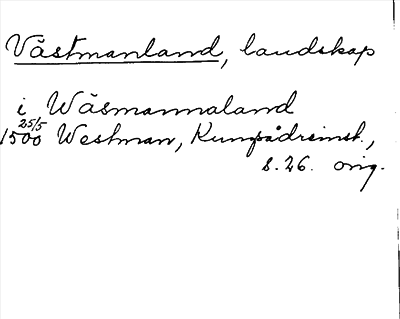 Västmanland, landskap
i Wäsmannaland
25/5
1500 Westman, Kungsådreinst.,
s. 26. orig.